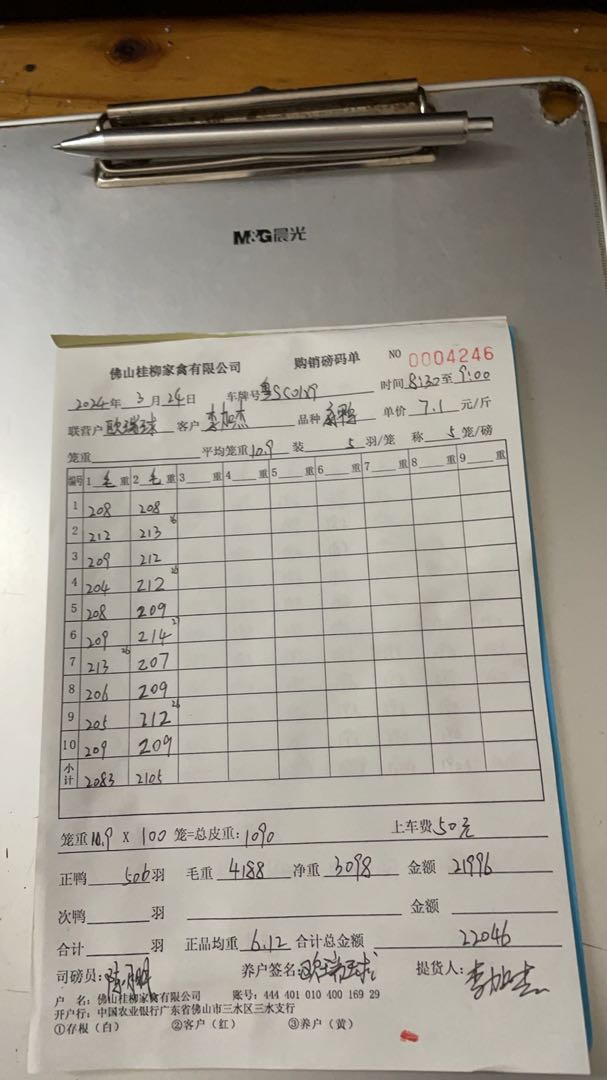 M&G晨光
佛山桂柳家禽有限公司 购销磅码单 NO 0004246
2024年 3月 24日 车牌号 时间 8:30至 9:00
联营户 欧瑞球 客户 李旭杰 品种 单价 7.1 元/斤
笼重 平均笼重 10.9 装 5 羽/笼 称 5 笼/磅
编号 1 毛 重 2 毛 重 3 重 4 重 5 重 6 重 7 重 8 重 9 重
1 208 208
2 212 213 26
3 209 212
4 204 212 26
5 208 209
6 209 214 27
7 213 26 207
8 206 209
9 205 212 26
10 209 209
小计 2083 2105
笼重 10.9 X 100 笼=总皮重: 1090 上车费 50元
正鸭 506 羽 毛重 4188 净重 3098 金额 21996
次鸭 羽 金额
合计 羽 正品均重 6.12 合计总金额 22046
司磅员: 养户签名: 欧瑞球 提货人:
户 名: 佛山桂柳家禽有限公司 账号: 444 401 010 400 169 29
开户行: 中国农业银行广东省佛山市三水区三水支行
①存根（白） ②客户（红） ③养户（黄）